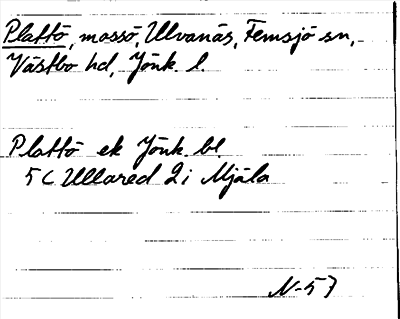 Plattö, mossö, Ulvanäs, Femsjö sn,
Västbo hd, Jönk. l.
Plattö ek Jönk. bl.
5 C Ullared 2 i Mjäla
N-57